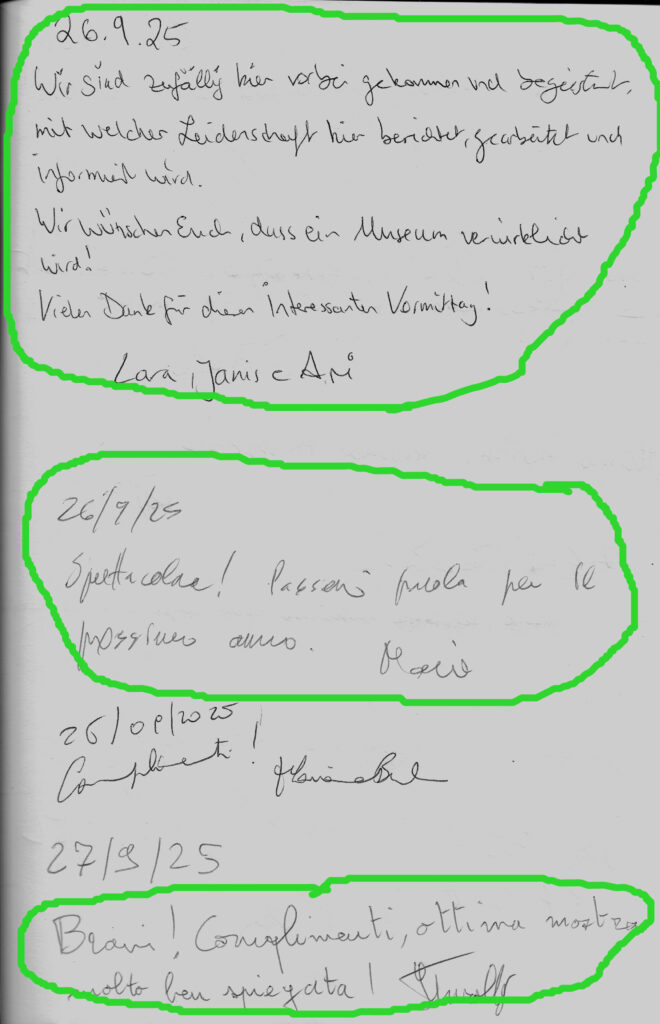 26.9.25
Wir sind zufällig hier vorbei gekommen und begeistert,
mit welcher Leidenschaft hier berichtet, gearbeitet und
informiert wird.
Wir wünschen Euch, dass ein Museum verwirklicht
wird!
Vielen Dank für diesen interessanten Vormittag!
Lara, Janis e
26/9/25
Spettacolare! per il
prossimo anno.
26/09/2025
Complimenti!
27/9/25
Bravi! Complimenti, ottima mostra
molto ben spiegata!